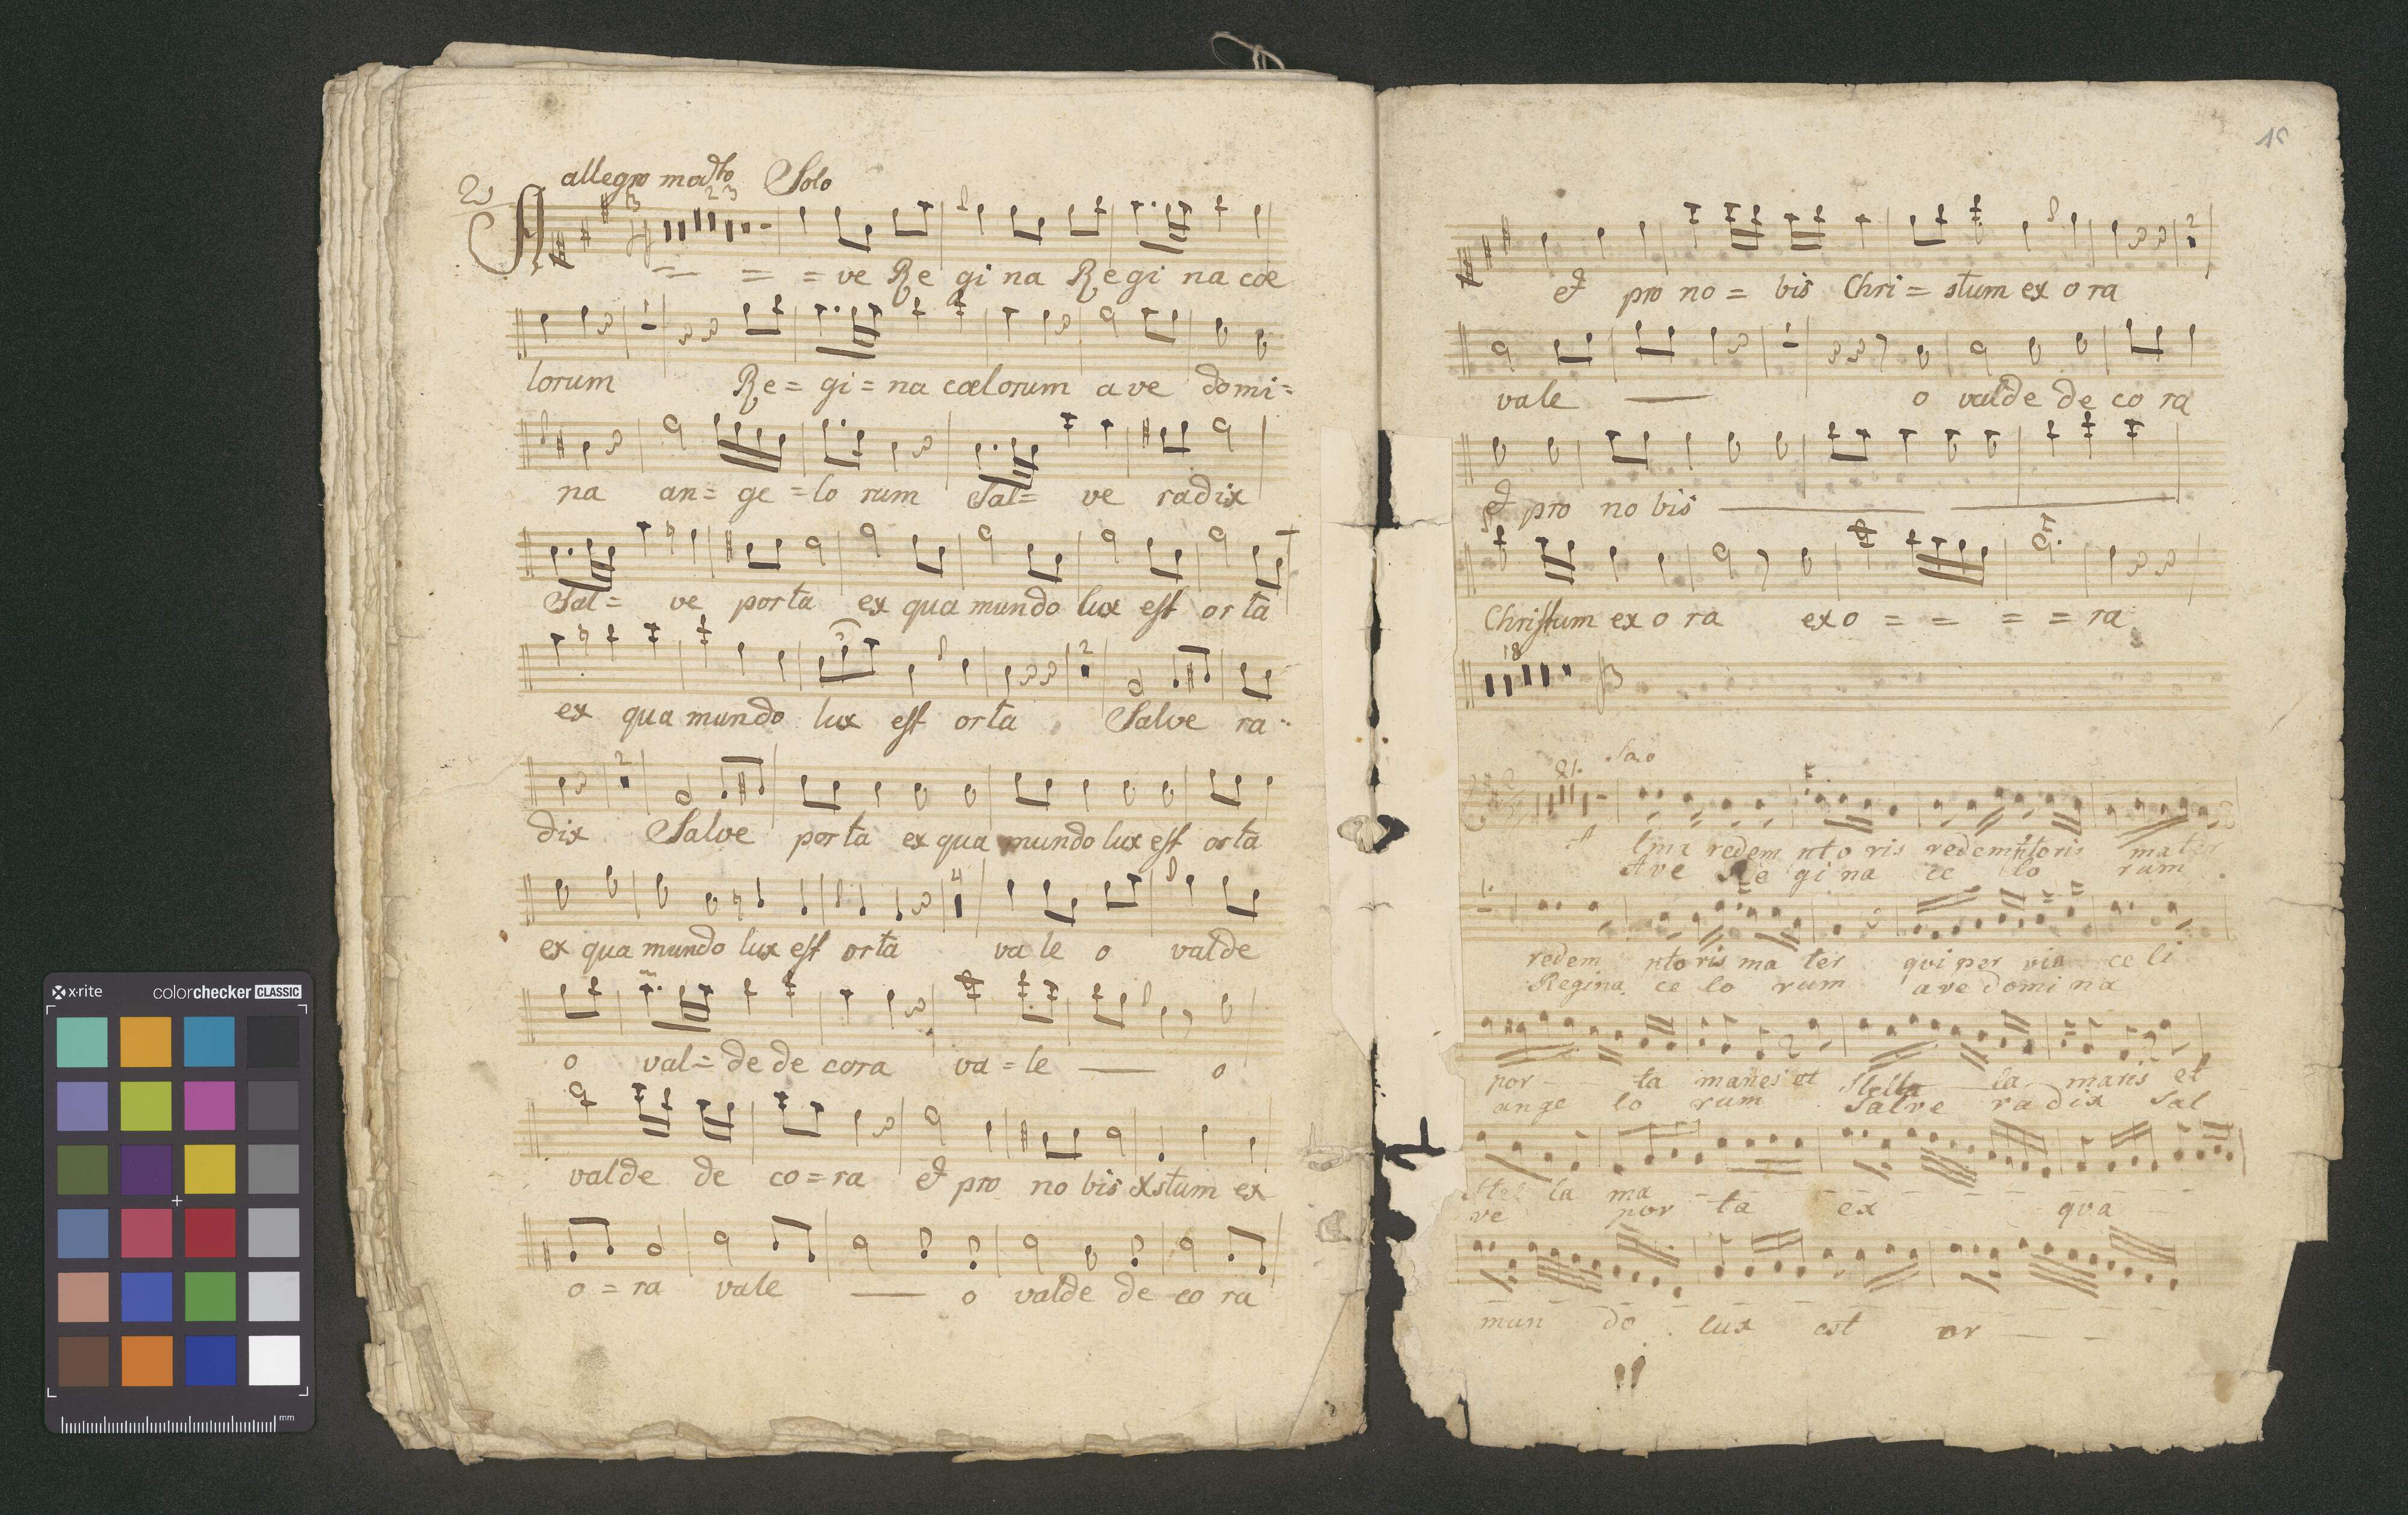 allegro modto Solo
2
23
A = = = ve Re gi na Regi na cœ
lorum Re = gi = na cœlorum a ve domi =
na an = ge = lo rum Sal = ve radix
Sal = ve porta ex qua mundo lux est orta
ex qua mundo lux est orta Salve ra =
2
dix Salve porta ex qua mundo lux est orta
2
ex qua mundo lux est orta va le o valde
4
o val = de de cora va = le o
valde de co = ra et pro no bis Xstum ex
o = ra vale o valde de co ra
15
2
et pro no = bis Chri = stum ex o ra
vale o valde de co ra
et pro no bis
Christum ex o ra exo = = = = ra
18
21. Solo
A lma redem pto ris redemptoris mater
Ave Re gi na ce lo rum
redem pto ris ma ter qui per via ce li
Regina ce lo rum ave domi na
por ta manes et Stella la maris et
ange lo rum Salve radix Sal
Stel la ma
ve por ta ex qua
mun do lux est or
x-rite colorchecker CLASSIC
mm